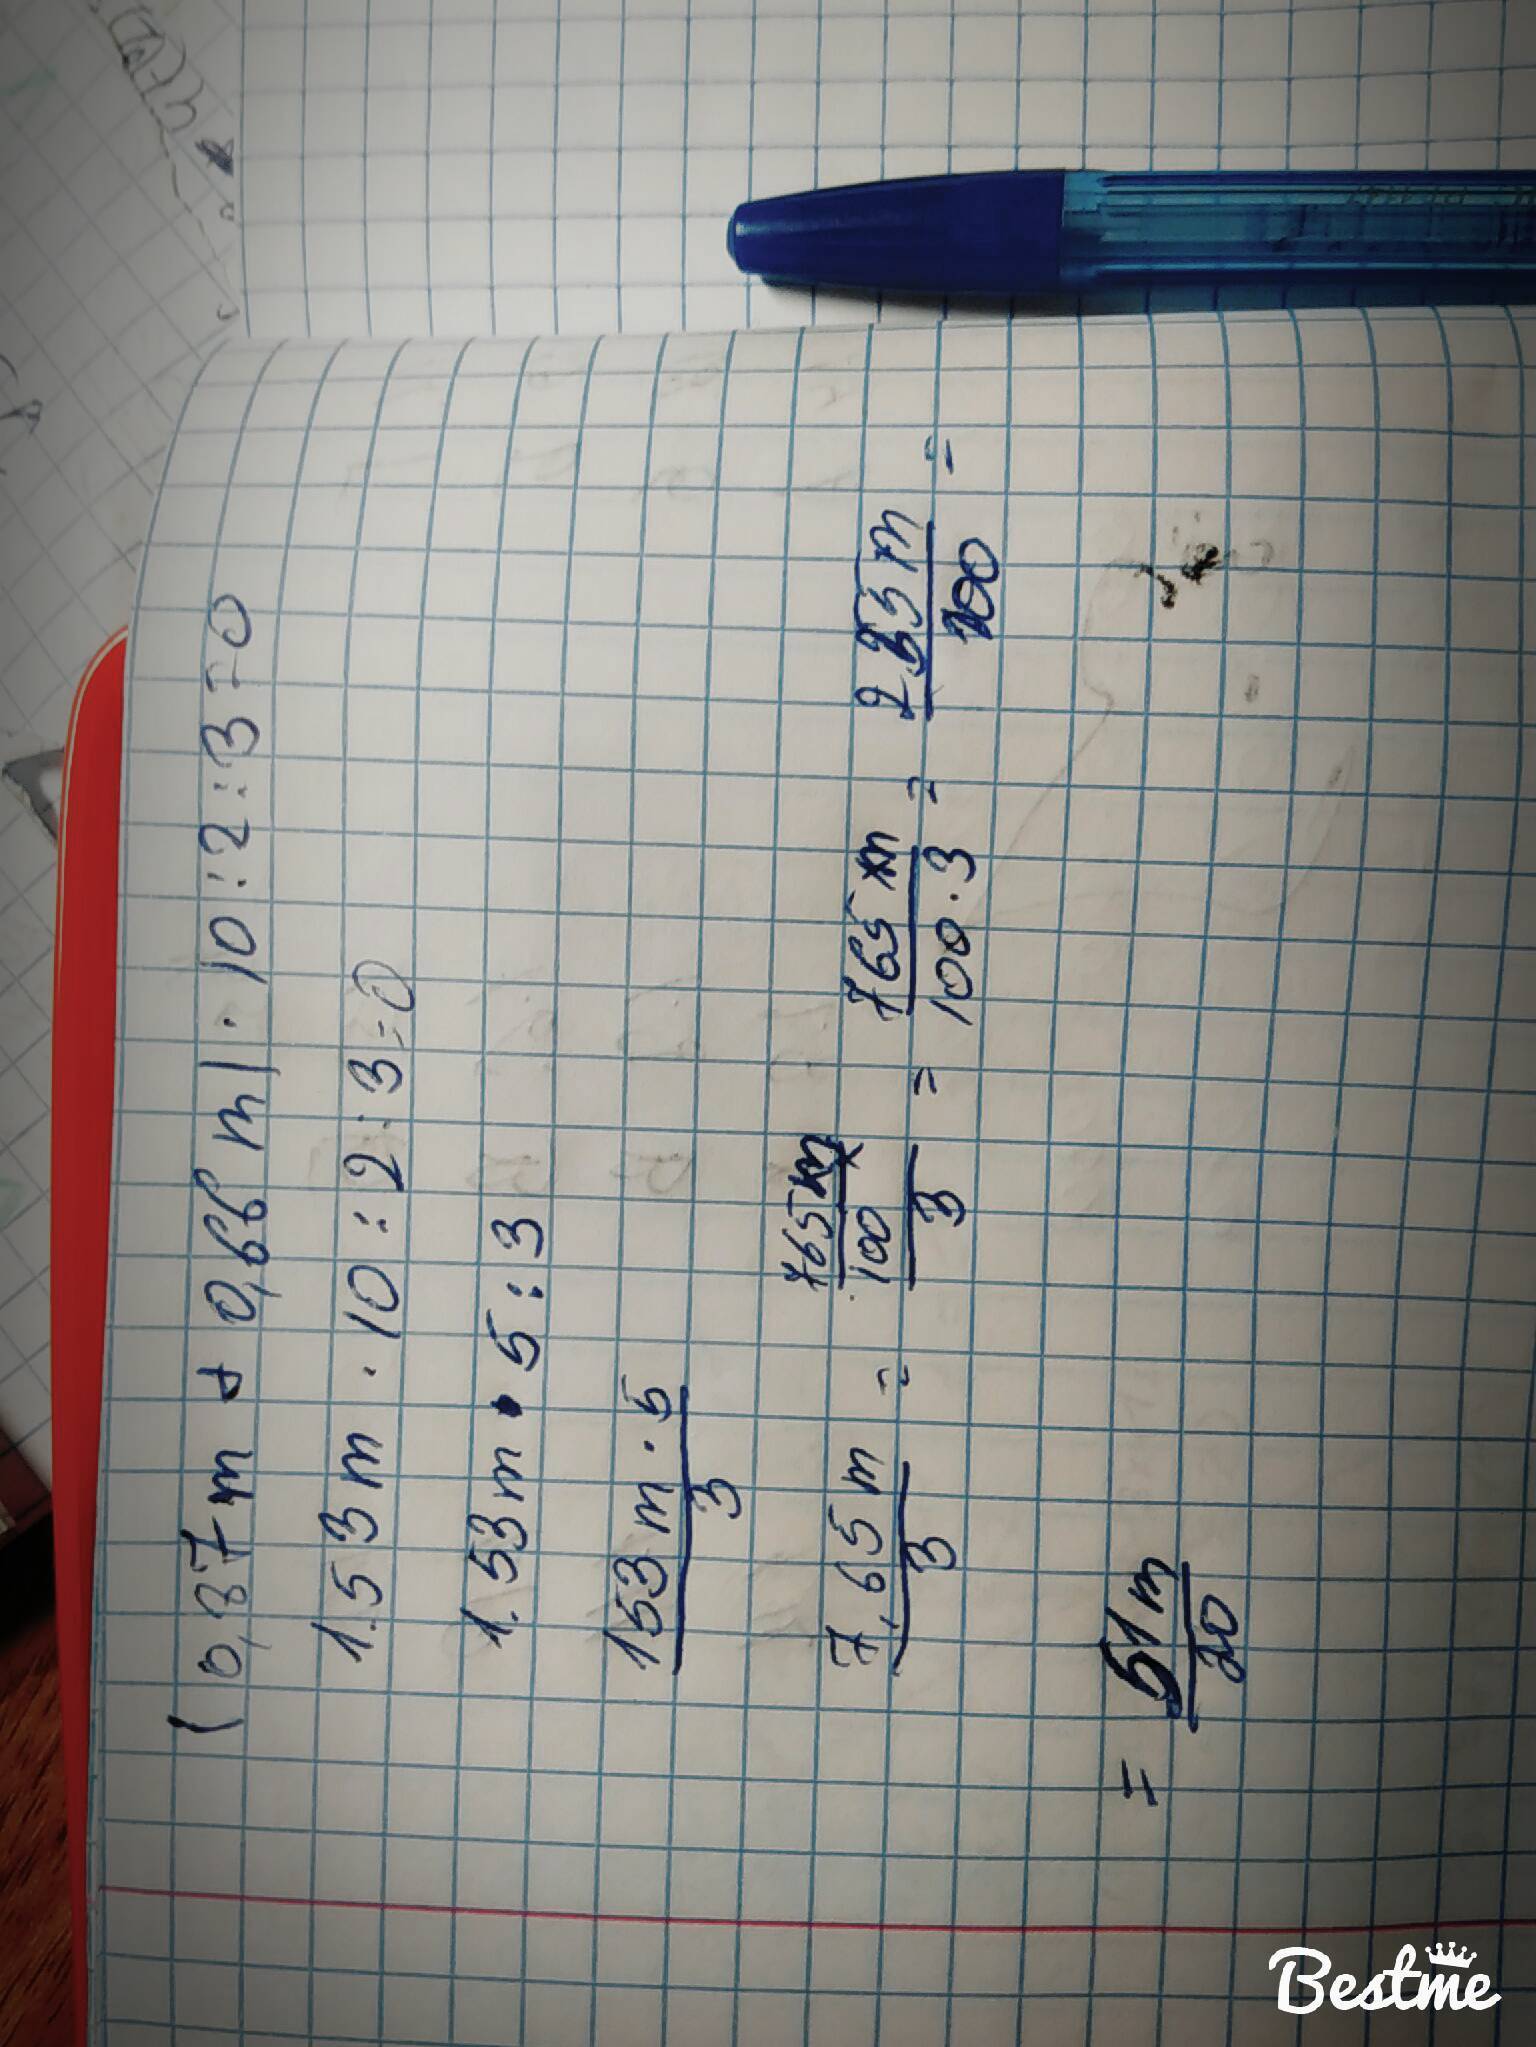 (0,87m + 0,66m) · 10 : 2 : 3 = 0
1.53m · 10 : 2 : 3 = 0
1.53m · 5 : 3
153m · 5
3
7,65m / 3 = 765m / 100 / 3 = 765m / 100 · 3 = 255m / 100 =
= 51m / 20
Bestme